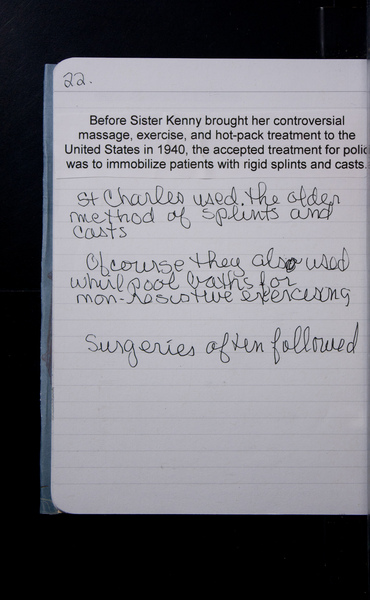 22.
Before Sister Kenny brought her controversial
massage, exercise, and hot-pack treatment to the
United States in 1940, the accepted treatment for polio
was to immobilize patients with rigid splints and casts.
St Charles used the older
method of splints and
casts
Of course they also used
whirlpool baths for
non-resistive exercising
Surgeries often followed